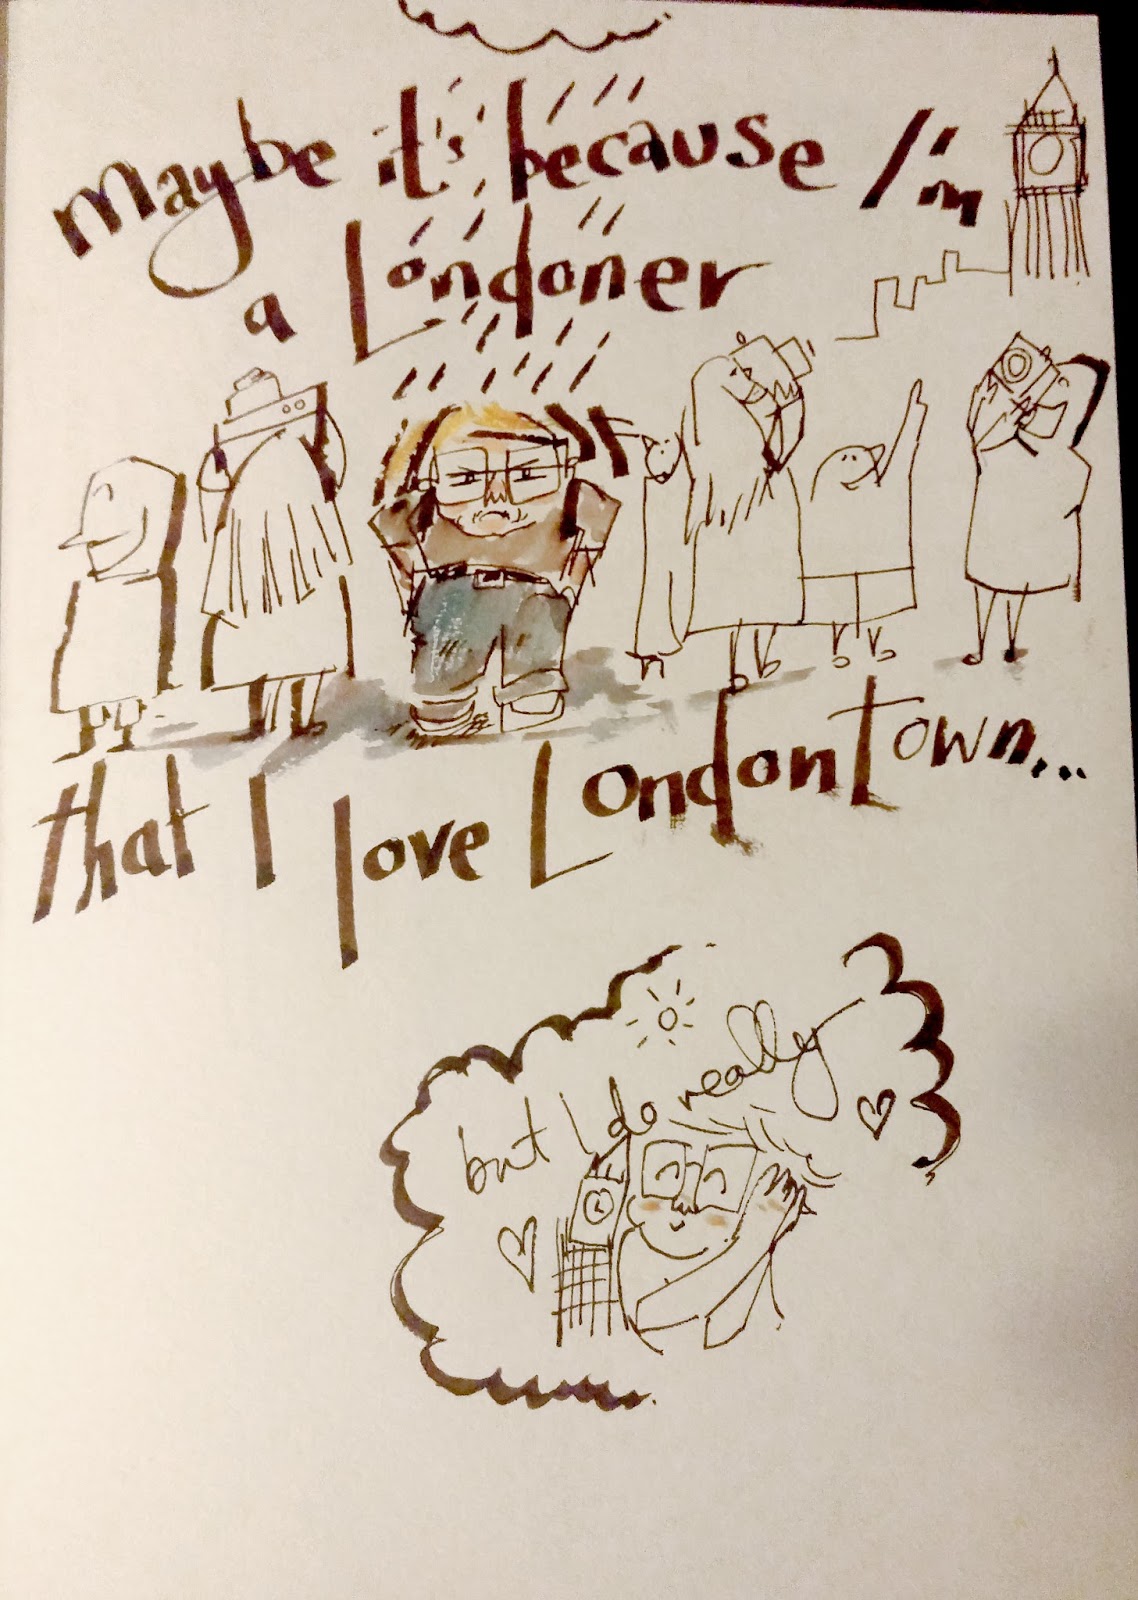 Maybe it's because I'm
a Londoner
that I love London Town...
but I do really